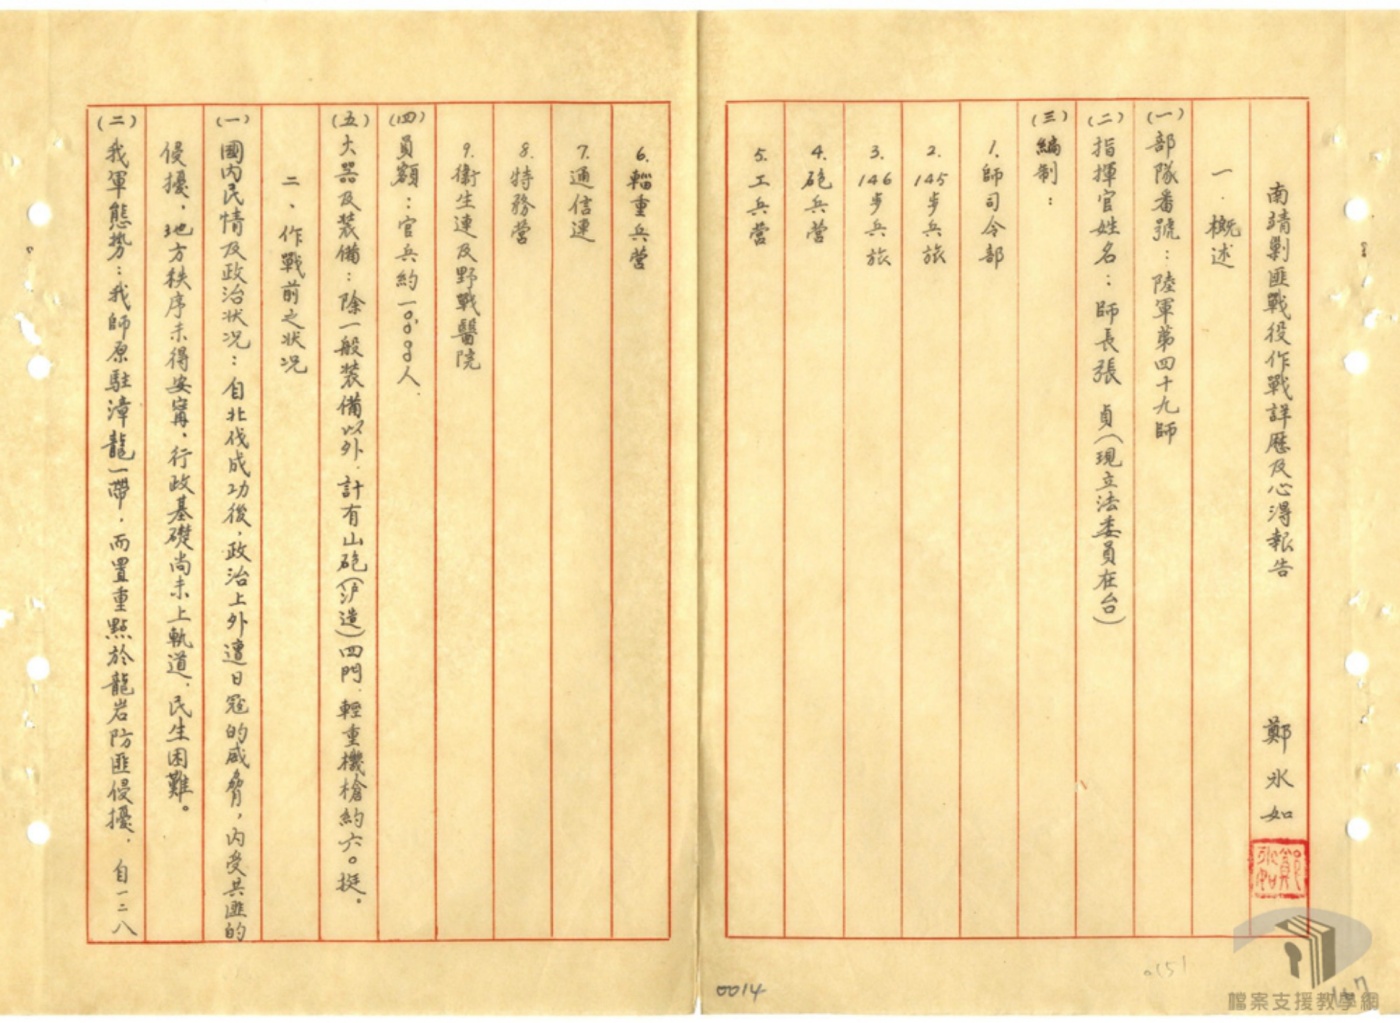 南靖剿匪戰役作戰詳歷及心得報告 鄭冰如
一．概述
(一)部隊番號：陸軍第四十九師
(二)指揮官姓名：師長張 貞(現立法委員在台)
(三)編制：
1.師司令部
2.145步兵旅
3.146步兵旅
4.砲兵營
5.工兵營
6.輜重兵營
7.通信連
8.特務營
9.衛生連及野戰醫院
(四)員額：官兵約一○,○○○人.
(五)火器及裝備：除一般裝備以外.計有山砲(沪造)四門.輕重機槍約六○挺.
二、作戰前之狀况
(一)國內民情及政治狀况：自北伐成功後,政治上外遭日寇的威脅,內受共匪的
侵擾,地方秩序未得安寗、行政基礎尚未上軌道.民生困難。
(二)我軍態势：我師原駐漳龍一帶.而置重點於龍岩防匪侵擾.自一二八
0014
檔案支援教學網